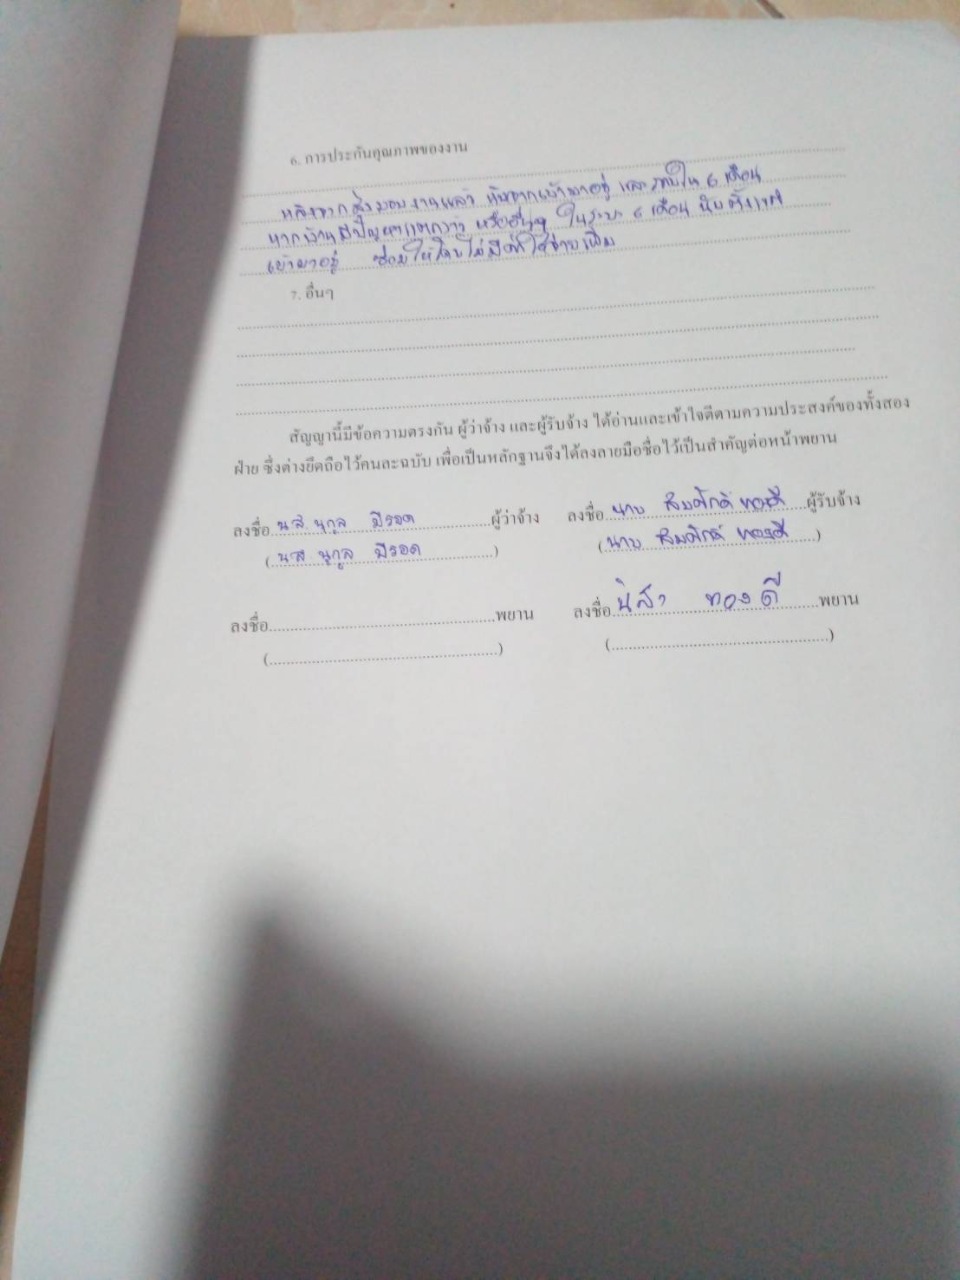 6. การประกันคุณภาพของงาน
หลังจากส่งมอบงานแล้ว นับจากเข้ามาอยู่ และภายใน 6 เดือน
หากบ้านมีปัญหาแตกร้าว หรืออื่นๆ ในระยะ 6 เดือน นับตั้งแต่
เข้ามาอยู่ ซ่อมให้โดยไม่มีค่าใช้จ่ายเพิ่ม
7. อื่นๆ
สัญญานี้มีข้อความตรงกัน ผู้ว่าจ้าง และผู้รับจ้าง ได้อ่านและเข้าใจดีตามความประสงค์ของทั้งสอง
ฝ่าย ซึ่งต่างยึดถือไว้คนละฉบับ เพื่อเป็นหลักฐานจึงได้ลงลายมือชื่อไว้เป็นสำคัญต่อหน้าพยาน
ลงชื่อ นส นุกูล มีรอด ผู้ว่าจ้าง ลงชื่อ นาย สมศักดิ์ ทองดี ผู้รับจ้าง
(นส นุกูล มีรอด) (นาย สมศักดิ์ ทองดี)
ลงชื่อ พยาน ลงชื่อ นิสา ทองดี พยาน